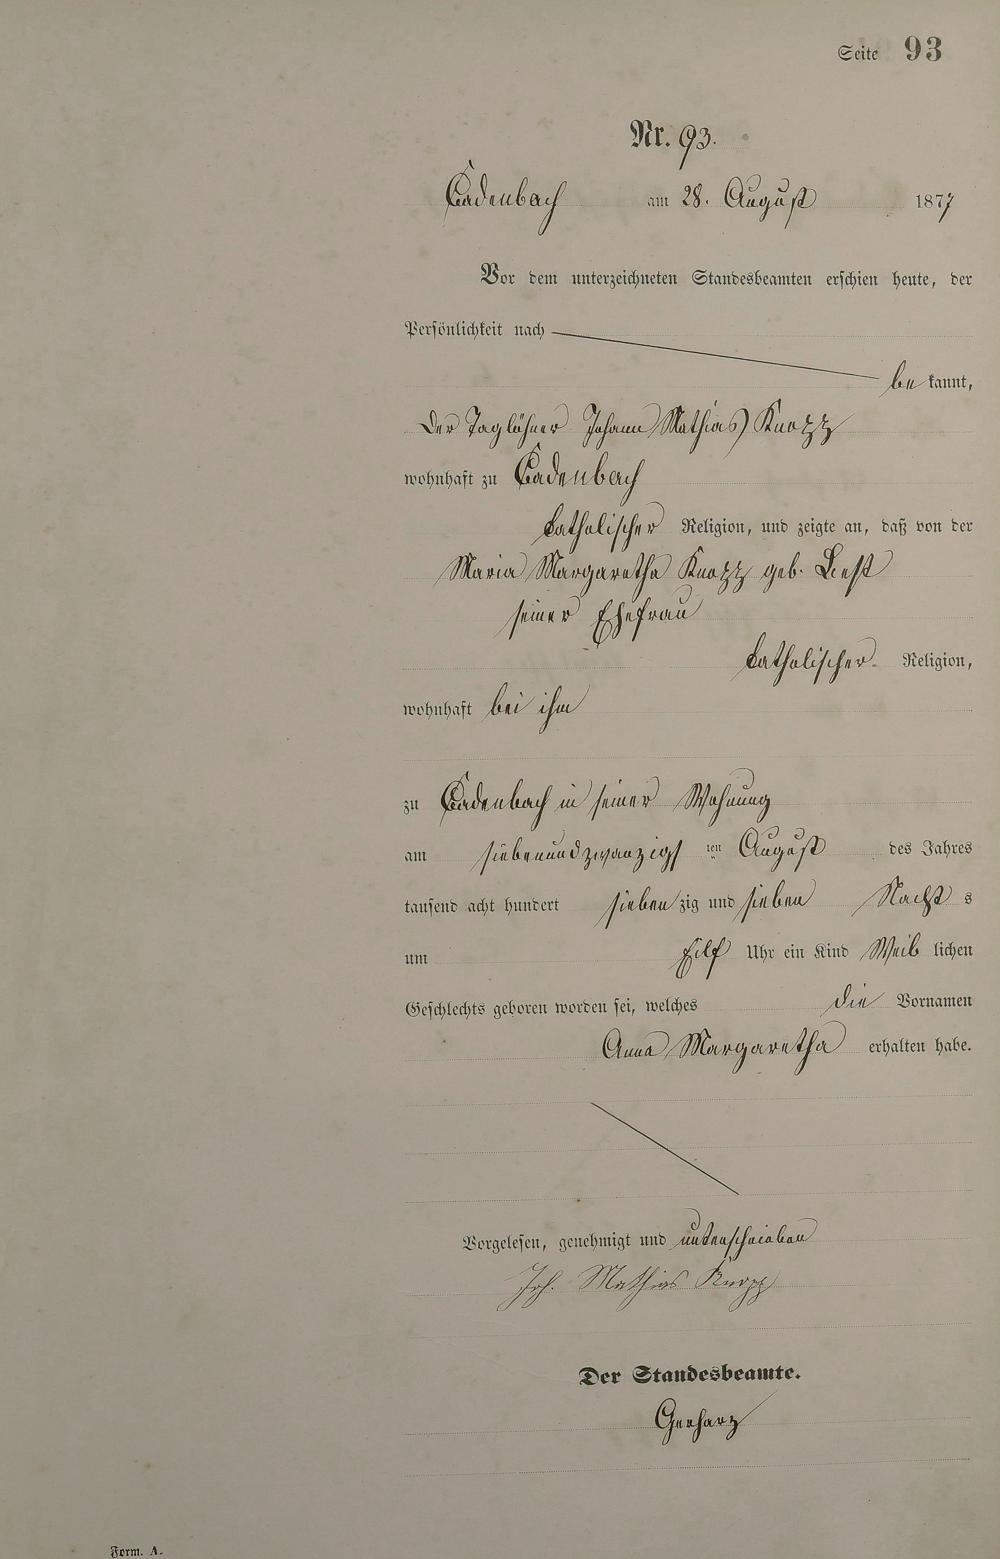 Seite 93
Nr. 93.
Cadenbach am 28. August 1877
Vor dem unterzeichneten Standesbeamten erschien heute, der
Persönlichkeit nach
bekannt,
der Taglöhner Johann Mathias Knopp
wohnhaft zu Cadenbach
katholischer Religion, und zeigte an, daß von der
Maria Margaretha Knopp geb. Best
seiner Ehefrau
katholischer Religion,
wohnhaft bei ihm
zu Cadenbach in seiner Wohnung
am siebenundzwanzigsten August des Jahres
tausend acht hundert siebenzig und sieben Nachts
um Eilf Uhr ein Kind Weiblichen
Geschlechts geboren worden sei, welches die Vornamen
Anna Margaretha erhalten habe.
Vorgelesen, genehmigt und unterschrieben
Joh. Mathias Knopp
Der Standesbeamte.
Gerharz
Form. A.